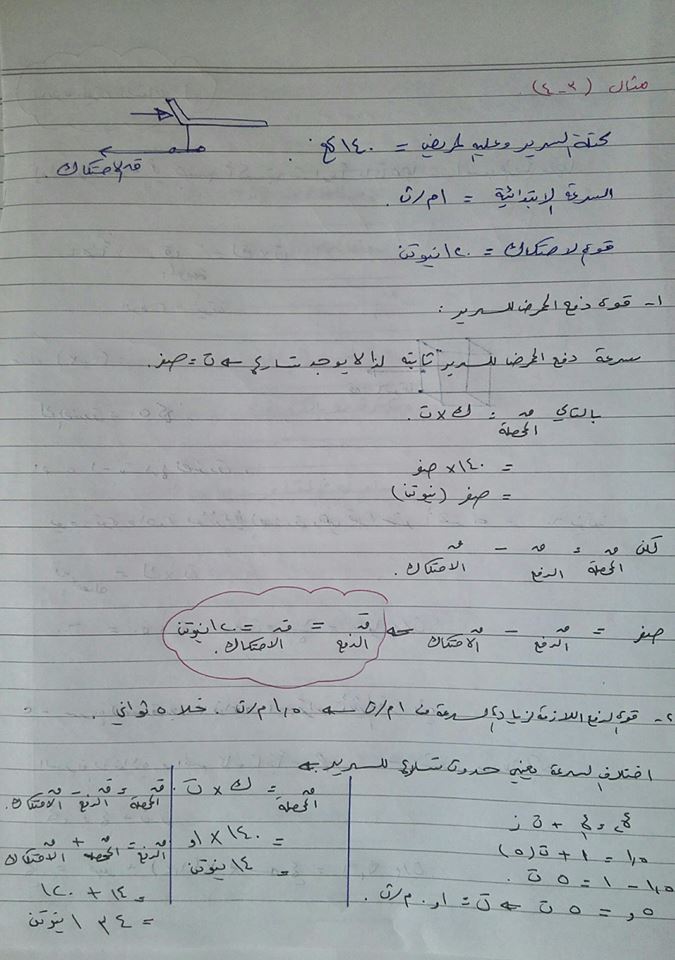 مثال (٣-٤)
كتلة السرير وعليه المريض = ١٤٠ كغ.
قد الاحتكاك
السرعة الابتدائية = ١م/ث.
قوة الاحتكاك = ١٢٠ نيوتن
١- قوة دفع الممرضة للسرير:
سرعة دفع الممرضة للسرير ثابته لذا لا يوجد تسارع ⇐ ت = صفر.
بالتالي قد المحصلة = ك × ت.
= ١٤٠ × صفر
= صفر (نيوتن)
لكن قد المحصلة = قد الدفع - قد الاحتكاك.
صفر = قد الدفع - قد الاحتكاك ⇐ قد الدفع = قد الاحتكاك = ١٢٠ نيوتن.
٢- قوة الدفع اللازمة لزيادة السرعة من ١م/ث ⇐ ١,٥م/ث. خلال ٥ ثواني.
اختلاف السرعة يعني حدوث تسارع للسرير ⇐
ع٢ = ع١ + ت ز
١,٥ = ١ + ت(٥)
١,٥ - ١ = ٥ ت.
٥,. = ٥ ت ⇐ ت = ١,. م/ث٢.
قد المحصلة = ك × ت.
= ١٤٠ × ١,.
= ١٤ نيوتن
قد المحصلة = قد الدفع - قد الاحتكاك.
قد الدفع = قد المحصلة + قد الاحتكاك
= ١٤ + ١٢٠
= ١٣٤ نيوتن